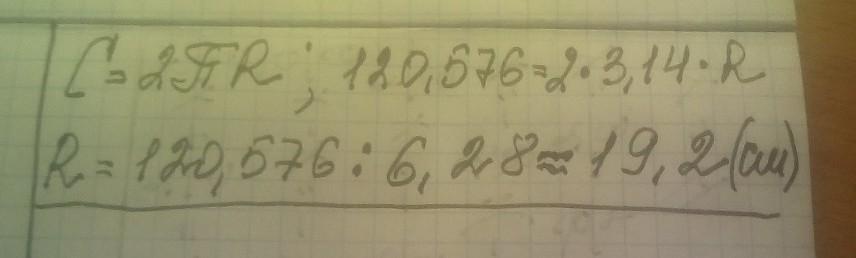 C=2πR; 120,576=2·3,14·R
R=120,576:6,28≈19,2(см)